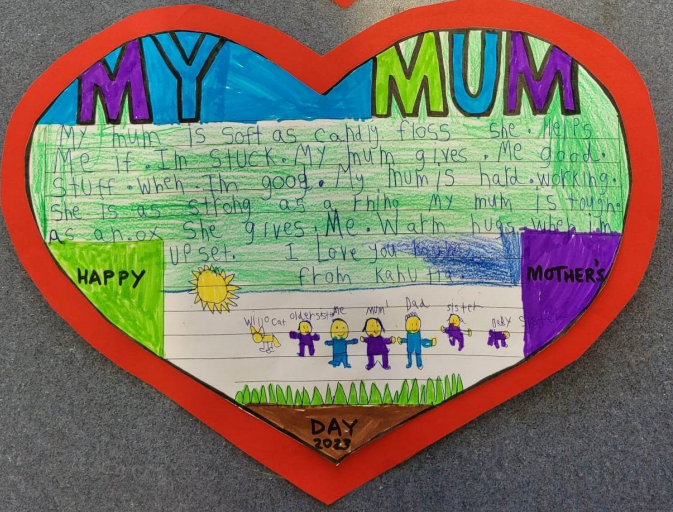 MY MUM
My mum is soft as candy floss she. Helps
Me if. I'm stuck. My mum gives. Me good.
stuff. when. I'm good. My mum is hard. working.
She is as strong as a rhino My mum is tough.
as an ox She gives. Me. Warm hugs when i'm
upset. I Love you
from Kahu
HAPPY MOTHER'S
Cat older sister Me Mum Dad sister Baby
DAY
2023